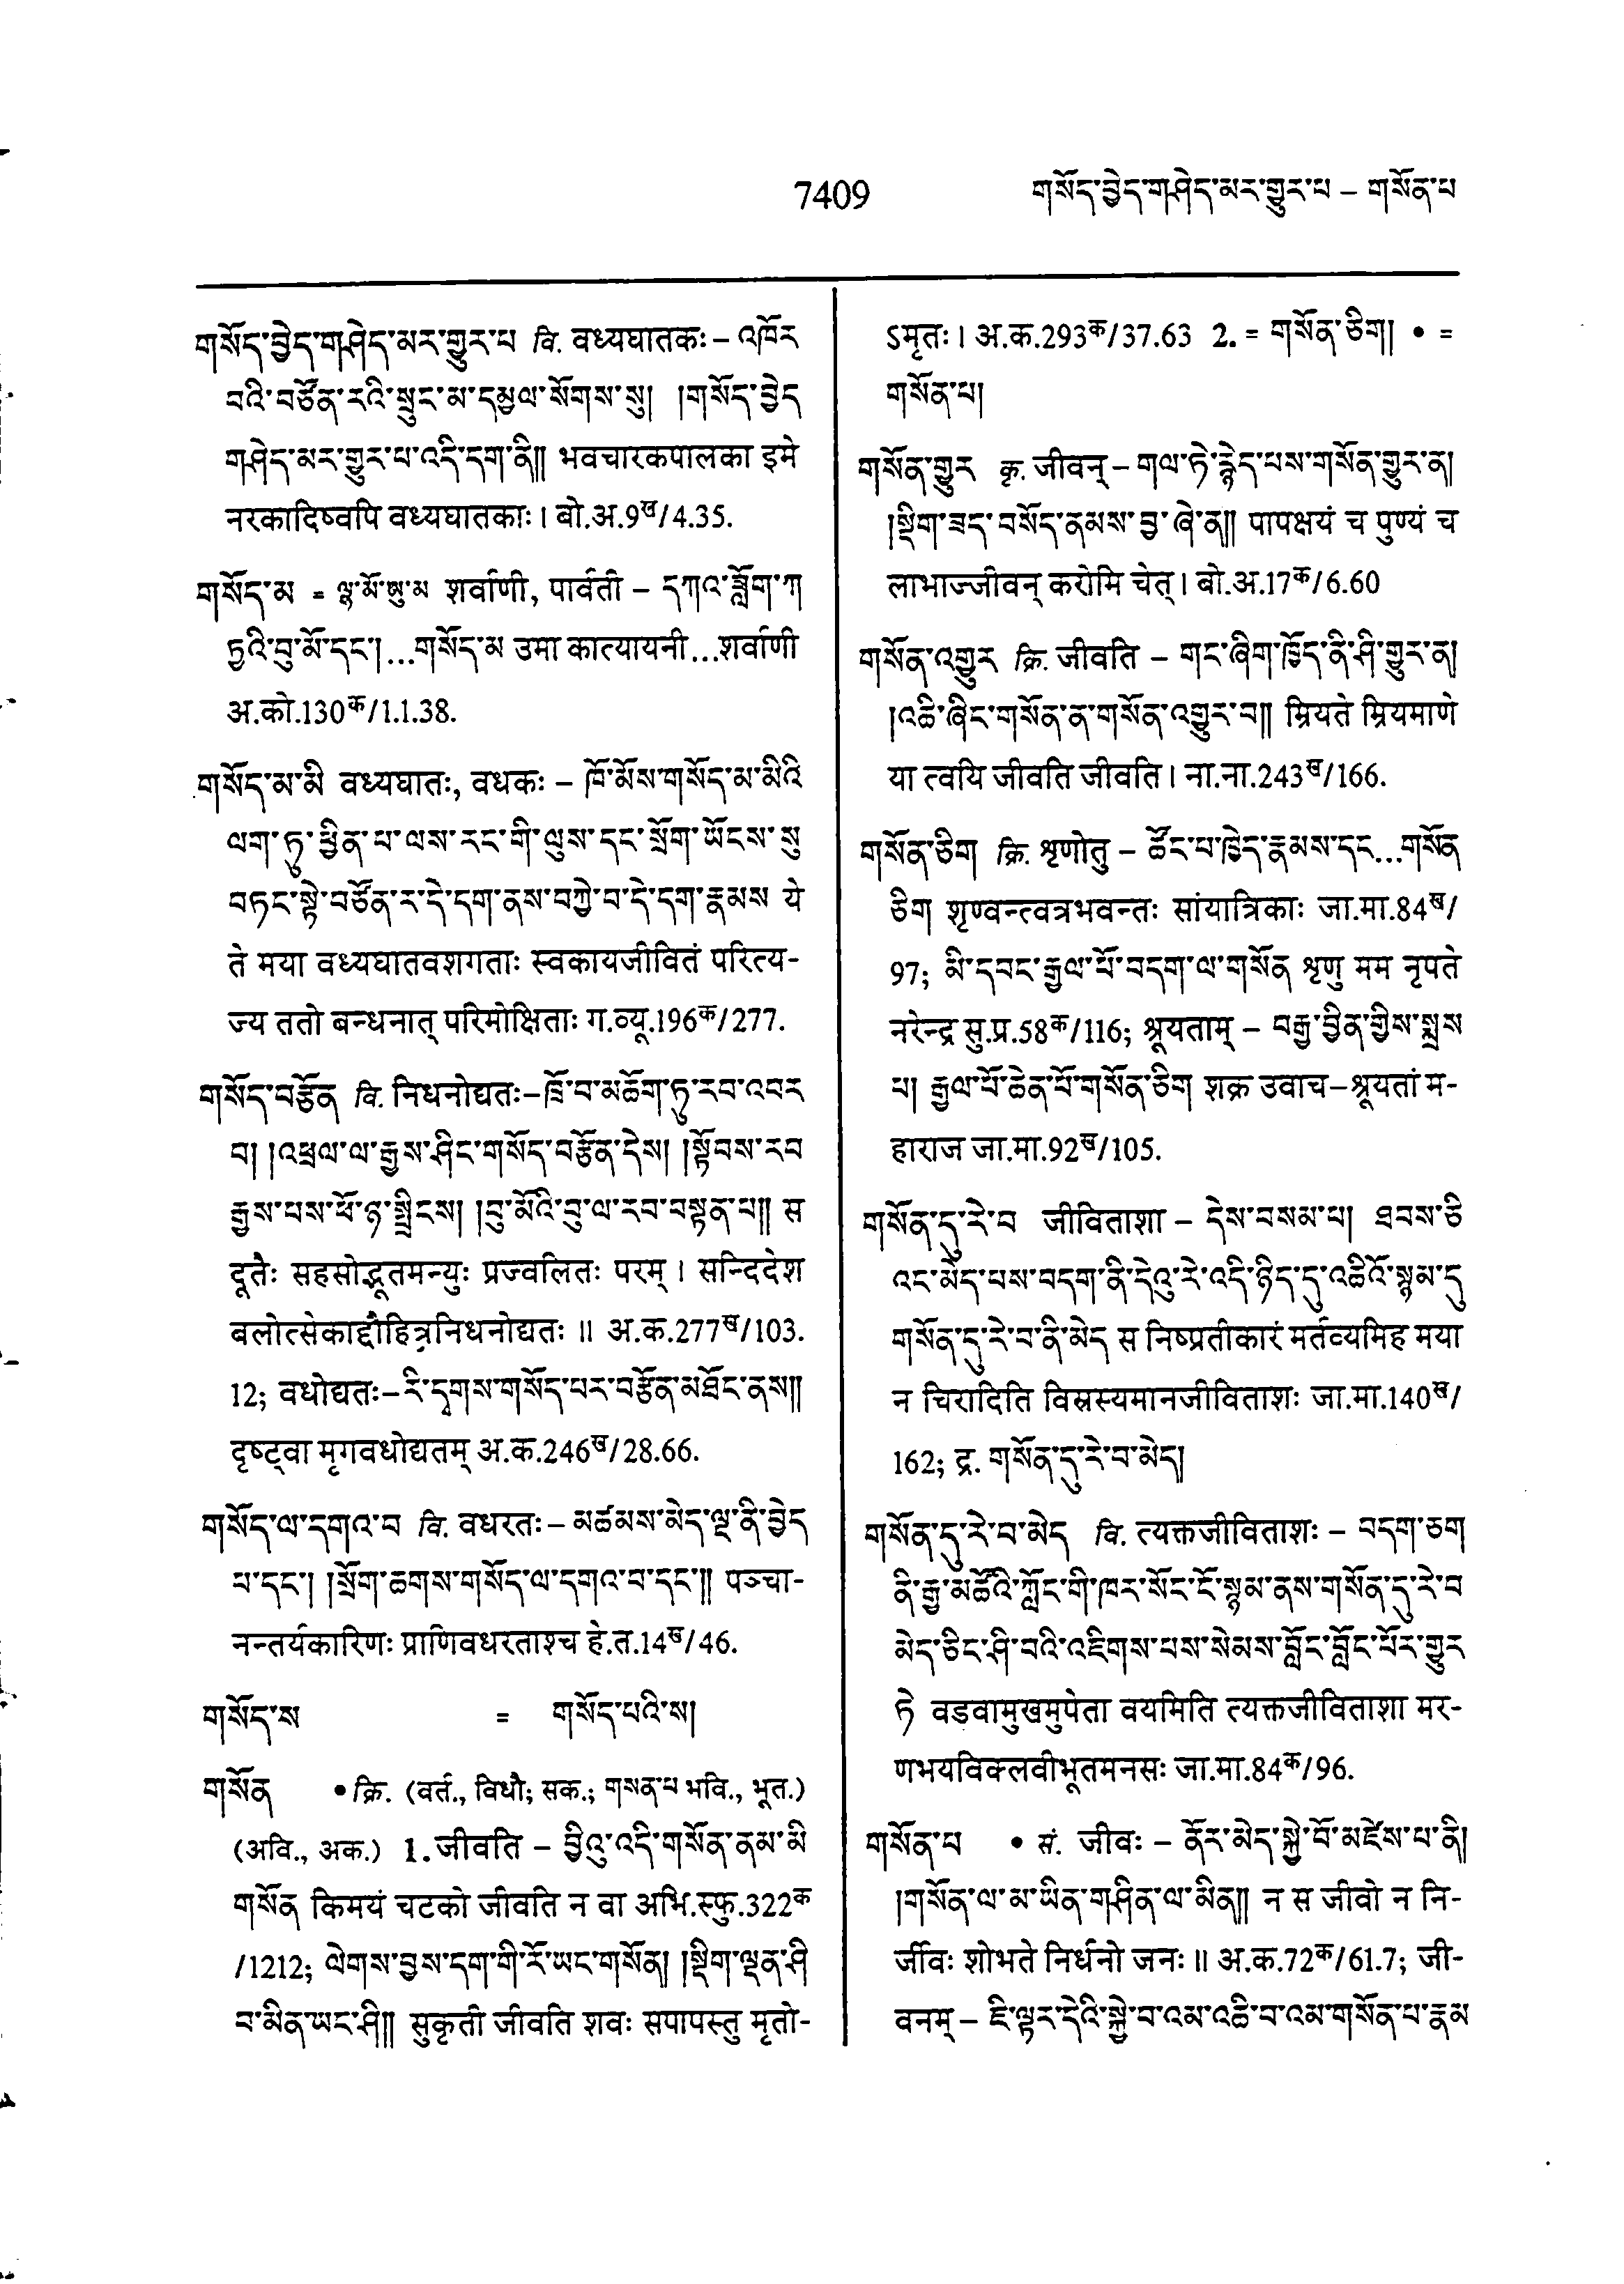 7409 གསོད་བྱེད་གཤེད་མར་གྱུར་པ – གསོན་པ
གསོད་བྱེད་གཤེད་མར་གྱུར་པ वि. वध्यघातकः – འཁོར
བའི་བཙོན་རའི་སྲུང་མ་དམྱལ་སོགས་སུ། །གསོད་བྱེད
གཤེད་མར་གྱུར་པ་འདི་དག་ནི།། भवचारकपालका इमे
नरकादिष्वपि वध्यघातकाः। बो.अ.9ख/4.35.
གསོད་མ = ལྷ་མོ་ཨུ་མ शर्वाणी, पार्वती – དཀའ་ཟློག་ཀ
ཏྱའི་བུ་མོ་དང་། ...གསོད་མ उमा कात्यायनी...शर्वाणी
अ.को.130क/1.1.38.
གསོད་མ་མི वध्यघातः, वधकः – ཁོ་མོས་གསོད་མ་མིའི
ལག་ཏུ་ཕྱིན་པ་ལས་རང་གི་ལུས་དང་སྲོག་ཡོངས་སུ
བཏང་སྟེ་བཙོན་ར་དེ་དག་ནས་བཀྱེ་བ་དེ་དག་རྣམས ये
ते मया वध्यघातवशगताः स्वकायजीवितं परित्य-
ज्य ततो बन्धनात् परिमोक्षिताः ग.व्यू.196क/277.
གསོད་བརྩོན वि. निधनोद्यतः–ཁྲོ་བ་མཆོག་ཏུ་རབ་འབར
བ། །འཕྲལ་ལ་རྒྱས་ཤིང་གསོད་བརྩོན་དེས། །སྟོབས་རབ
རྒྱས་པས་ཕོ་ཉ་སྤྲིངས། །བུ་མོའི་བུ་ལ་རབ་བསྟན་པ།། स
दूतैः सहसोद्भूतमन्युः प्रज्वलितः परम्। सन्दिदेश
बलोत्सेकाद्दौहित्रनिधनोद्यतः॥ अ.क.277ख/103.
12; वधोद्यतः–རི་དྭགས་གསོད་པར་བརྩོན་མཐོང་ནས།།
दृष्ट्वा मृगवधोद्यतम् अ.क.246ख/28.66.
གསོད་ལ་དགའ་བ वि. वधरतः – མཚམས་མེད་ལྔ་ནི་བྱེད
པ་དང་། །སྲོག་ཆགས་གསོད་ལ་དགའ་བ་དང་།། पञ्चा-
नन्तर्यकारिणः प्राणिवधरताश्च हे.त.14ख/46.
གསོད་ས = གསོད་པའི་ས།
གསོན • क्रि. (वर्त., विधौ; सक.; གསན་པ भवि., भूत.)
(अवि., अक.) 1. जीवति – བྱིའུ་འདི་གསོན་ནམ་མི
གསོན किमयं चटको जीवति न वा अभि.स्फु.322क
/1212; ལེགས་བྱས་དག་གི་རོ་ཡང་གསོན། །སྡིག་ལྡན་ཤི
བ་མིན་ཡང་ཤི།། सुकृती जीवति शवः सपापस्तु मृतो-
ऽमृतः। अ.क.293क/37.63 2. = གསོན་ཅིག།  • =
གསོན་པ།
གསོན་གྱུར कृ. जीवन् – གལ་ཏེ་རྙེད་པས་གསོན་གྱུར་ན།
།སྡིག་ཟད་བསོད་ནམས་བྱ་ཞེ་ན།། पापक्षयं च पुण्यं च
लाभाज्जीवन् करोमि चेत्। बो.अ.17क/6.60
གསོན་འགྱུར क्रि. जीवति – གང་ཞིག་ཁྱོད་ནི་ཤི་གྱུར་ན།
།འཆི་ཞིང་གསོན་ན་གསོན་འགྱུར་བ།། म्रियते म्रियमाणे
या त्वयि जीवति जीवति। ना.ना.243ख/166.
གསོན་ཅིག क्रि. शृणोतु – ཚོང་པ་ཁྱེད་རྣམས་དང...གསོན
ཅིག शृण्वन्त्वत्रभवन्तः सांयात्रिकाः जा.मा.84ख/
97; མི་དབང་རྒྱལ་པོ་བདག་ལ་གསོན शृणु मम नृपते
नरेन्द्र सु.प्र.58क/116; श्रूयताम् – བརྒྱ་བྱིན་གྱིས་སྨྲས
པ། རྒྱལ་པོ་ཆེན་པོ་གསོན་ཅིག शक्र उवाच–श्रूयतां म-
हाराज जा.मा.92ख/105.
གསོན་དུ་རེ་བ जीविताशा – དེས་བསམ་པ། ཐབས་ཅི
འང་མེད་པས་བདག་ནི་དེའུ་རེ་འདི་ཉིད་དུ་འཆིའོ་སྙམ་དུ
གསོན་དུ་རེ་བ་ནི་མེད स निष्प्रतीकारं मर्तव्यमिह मया
न चिरादिति विस्रस्यमानजीविताशः जा.मा.140ख/
162; द्र. གསོན་དུ་རེ་བ་མེད།
གསོན་དུ་རེ་བ་མེད वि. त्यक्तजीविताशः – བདག་ཅག
ནི་རྒྱ་མཚོའི་ཀློང་གི་ཁར་སོང་ངོ་སྙམ་ནས་གསོན་དུ་རེ་བ
མེད་ཅིང་ཤི་བའི་འཇིགས་པས་སེམས་བློང་བློང་པོར་གྱུར
ཏེ वडवामुखमुपेता वयमिति त्यक्तजीविताशा मर-
णभयविक्लवीभूतमनसः जा.मा.84क/96.
གསོན་པ • सं. जीवः – ནོར་མེད་སྐྱེ་བོ་མཛེས་པ་ནི།
།གསོན་ལ་མ་ཡིན་གཤིན་ལ་མིན།། न स जीवो न नि-
र्जीवः शोभते निर्धनो जनः॥ अ.क.72क/61.7; जी-
वनम् – ཇི་ལྟར་དེའི་སྐྱེ་བ་འམ་འཆི་བ་འམ་གསོན་པ་རྣམ